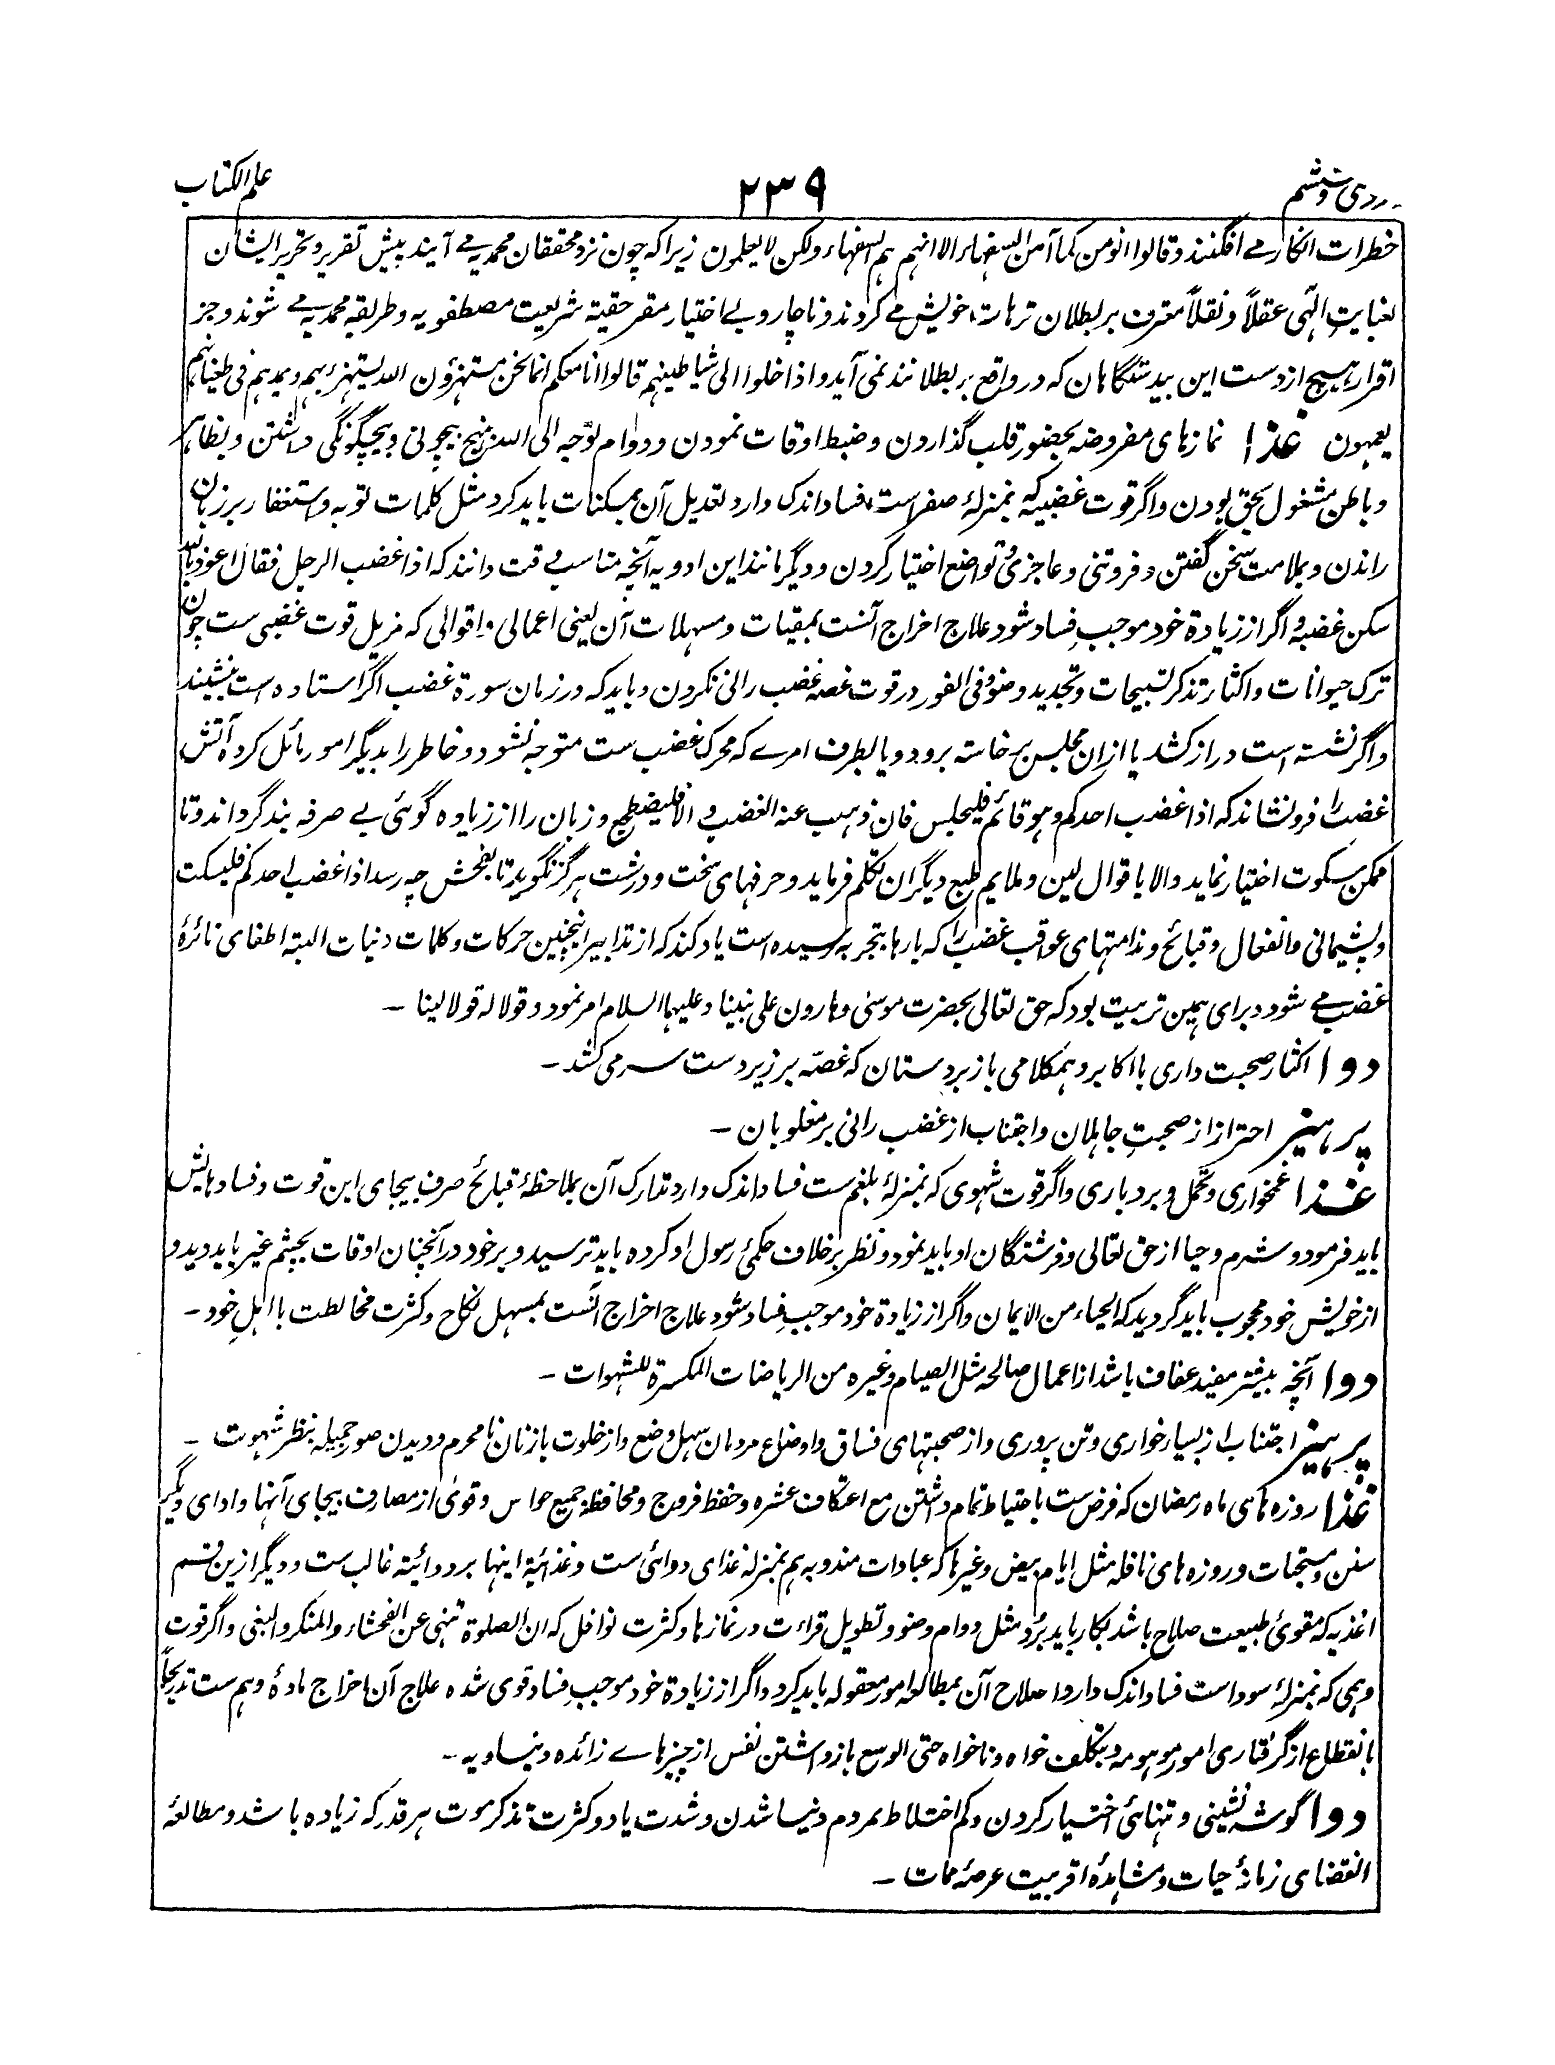 وردی و ششم ۲۳۹ علم الکتاب
خطرات انکار مے افگنند و قالوا انومن کما آمن السفهاء الا انهم هم السفهاء ولکن لا یعلمون زیرا که چون نزد محققان محمدیہ مے آیند پیش تقریر و تحریر ایشان
بعنایت الٰہی عقلاً و نقلاً معترف بر بطلان ترہات خویش مے گردند و ناچار و بے اختیار مقر حقیۃ شریعت مصطفویہ و طریقہ محمدیہ مے شوند و جز
اقرار ہیچ از دست این بیدستگاہان که در واقع بر بطلانند نمی آید و اذا خلوا الی شیاطینهم قالوا انا معکم انما نحن مستهزؤن الله یستهزء بهم و یمدهم فی طغیانهم
یعمهون غذا نمازہای مفروضہ بحضور قلب گذاردن و ضبط اوقات نمودن و دوام توجہ الی اللہ بنہج بیچونی و بیچگونگی داشتن و بظاہر
و باطن مشغول بحق بودن و اگر قوت غضبیہ که بمنزلۂ صفر است، فساد اندک دارد تعدیل آن بمسکنات باید کرد مثل کلمات توبہ و استغفار بر زبان
راندن و بملامت سخن گفتن و فروتنی و عاجزی و تواضع اختیار کردن و دیگر مانند این ادویہ آنچہ مناسب وقت دانند که اذا غضب الرجل فقال اعوذ بالله
سکن غضبه و اگر از زیادۃ خود موجب فساد شود علاج اخراج آنست بمقیات و مسہلات آن یعنی اعمالی و اقوالی که مزیل قوت غضبی ست چون
ترک حیوانات و اکثار تذکر تسبیحات و تجدید وضو فی الفور در قوت غصہ غضب رانی نکردن و باید که در زمان سورۃ غضب اگر استادہ است بنشیند
و اگر نشستہ است دراز کشد یا ازان مجلس برخاستہ برود و یا بطرف امرے که محرک غضب ست متوجہ نشود و خاطر را بدیگر امور مائل کردہ آتش
غضب را فرو نشاند که اذا غضب احدکم و هو قائم فلیجلس فان ذهب عنه الغضب و الا فلیضطجع و زبان را از زیادہ گوئی بے صرفہ بند گرداند و تا
ممکن سکوت اختیار نماید والا باقوال لین و ملایم طبع دیگران تکلم فرماید و حرفہای سخت و درشت ہرگز نگوید تا بفحش چہ رسد اذا غضب احدکم فلیسکت
و پشیمانی و انفعال و قبائح و ندامتہای عواقب غضب را که بارہا بتجربہ رسیدہ است یاد کند که از تدابیر اینچنین حرکات و کلمات دنیات البتہ اطفای نائرۂ
غضب مے شود و برای ہمین تربیت بود که حق تعالی بحضرت موسیٰ و ہارون علی نبینا و علیہما السلام امر نمود و قولا له قولا لینا ۔
دوا اکثار صحبت داری با اکابر و ہمکلامی با زبردستان که غصّہ بر زیردست سر می کشد ۔
پرہیز احتراز از صحبتِ جاہلان و اجتناب از غضب رانی بر مغلوبان ۔
غذا غمخواری و تحمل و بردباری و اگر قوت شہوی که بمنزلۂ بلغم ست فساد اندک دارد تدارک آن بملاحظۂ قبائح صرف بیجای این قوت و فسادہایش
باید فرمود و شرم و حیا از حق تعالی و فرشتگان او باید نمود و نظر بر خلاف حکمی رسول او کردہ باید ترسید و بر خود در آنچنان اوقات بچشم غیر باید دید و
از خویش خود محجوب باید گردید که الحیاء من الایمان و اگر از زیادۃ خود موجب فساد شود علاج اخراج آنست بمسہل نکاح و کثرت مخالطت با اہلِ خود ۔
دوا آنچہ بیشتر مفید عفاف باشد از اعمال صالحہ مثل الصیام و غیرہ من الریاضات المکسرة للشهوات ۔
پرہیز اجتناب از بسیار خواری و تن پروری و از صحبتہای فساق و اوضاع مردمان سہل وضع و از خلوت با زنان نامحرم و دیدن صور جمیلہ بنظر شہوت ۔
غذا روزہ ہای ماہ رمضان که فرض ست باحتیاط تمام داشتن مع اعتکاف عشرہ و حفظ فروج و محافظۃ جمیع حواس و قویٰ از مصارف بیجای آنہا و ادای دیگر
سنن و مستحبات و روزہ ہای نافلہ مثل ایام بیض و غیرہا که عبادات مندوبہ ہم بمنزلہ غذای دوائی ست و غذائیۃ اینہا بر دوائیتہ غالب ست و دیگر ازین قسم
اغذیہ که مقوئ طبیعت صلاح باشد بکار باید برد مثل دوام وضو و تطویل قراءت در نمازہا و کثرت نوافل که ان الصلوة تنهی عن الفحشاء و المنکر و البغی و اگر قوت
وہمی که بمنزلۂ سوداست فساد اندک دارد اصلاح آن بمطالعۂ امور معقولہ باید کرد و اگر از زیادۃ خود موجب فساد قوی شدہ علاج آن اخراج مادۂ وہم ست تدریجاً
بانقطاع از گرفتاری امور موہومہ و بتکلف خواہ و ناخواہ حتی الوسع باز داشتن نفس از چیزہاے زائدہ دنیاویہ ۔
دوا گوشہ نشینی و تنہائی اختیار کردن و کم اختلاط بمردم دنیا شدن و شدت یاد و کثرت تذکر موت ہر قدر که زیادہ باشد و مطالعۂ
انقضای زمانۂ حیات و مشاہدۂ اقربیت عرصۂ ممات ۔